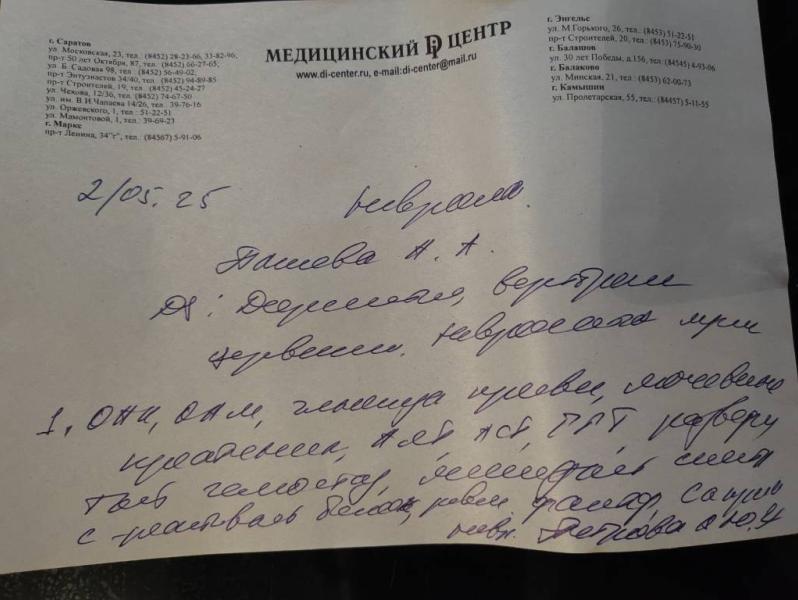 г. Саратов
ул. Московская, 23, тел. (8452) 28-23-66, 33-82-96,
пр-т 50 лет Октября, 87, тел. (8452) 66-27-65,
ул. Б. Садовая 98, тел. (8452) 56-49-02,
пр-т Энтузиастов 34/40, тел. (8452) 94-89-85
пр-т Строителей, 19, тел. (8452) 45-24-27
ул. Чехова, 12/36, тел. (8452) 74-67-50
ул. им. В.И.Чапаева 14/26, тел. 39-76-16
ул. Оржевского, 1, тел.: 51-22-51
ул. Мамонтовой, 1, тел.: 39-69-23
г. Маркс
пр-т Ленина, 34"г", тел.: (84567) 5-91-06
МЕДИЦИНСКИЙ DI ЦЕНТР
www.di-center.ru, e-mail:di-center@mail.ru
г. Энгельс
ул. М.Горького, 26, тел.: (8453) 51-22-51
пр-т Строителей, 20, тел.: (8453) 75-90-30
г. Балашов
ул. 30 лет Победы, д.156, тел.: (84545) 4-93-06
г. Балаково
ул. Минская, 21, тел.: (8453) 62-00-73
г. Камышин
ул. Пролетарская, 55, тел.: (84457) 5-11-55
2/05.25
А. А.
Ds:
1, ОАК, ОАМ, глюкоза крови, мочевина
креатинин, АЛТ, АСТ, ГГТ
гемостаз,
с реактивный белок, ревм фактор,
Петрова